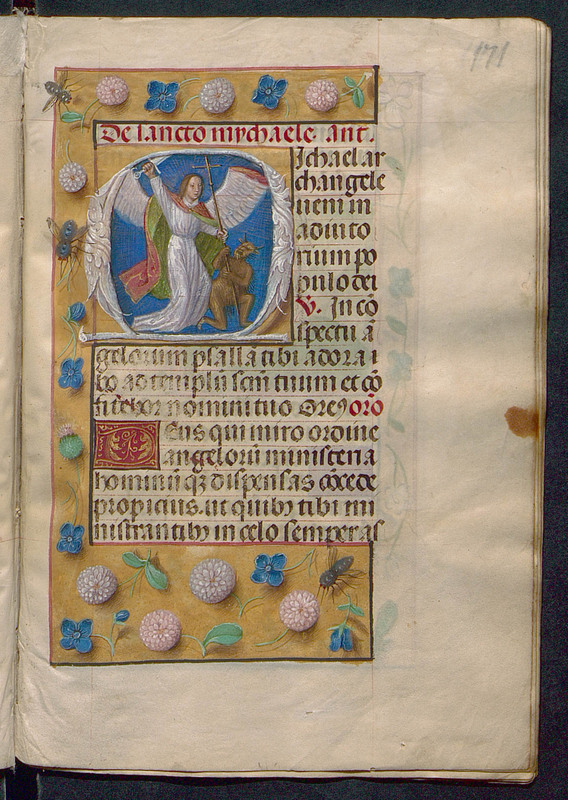 171
De sancto mychaele ant.
Ichael ar
changele
ueni in
adiuto
rium po
pulo dei
V. In cō
spectu ā
gelorum psallā tibi adora
bo ad templū scm̄ tuum et cō
nomini tuo Ore9 oro
Eus qui miro ordine
angelorū ministeria
hominū q3 dispensas
propicius. ut quib9 tibi mi
nistrantib9 in celo semper as